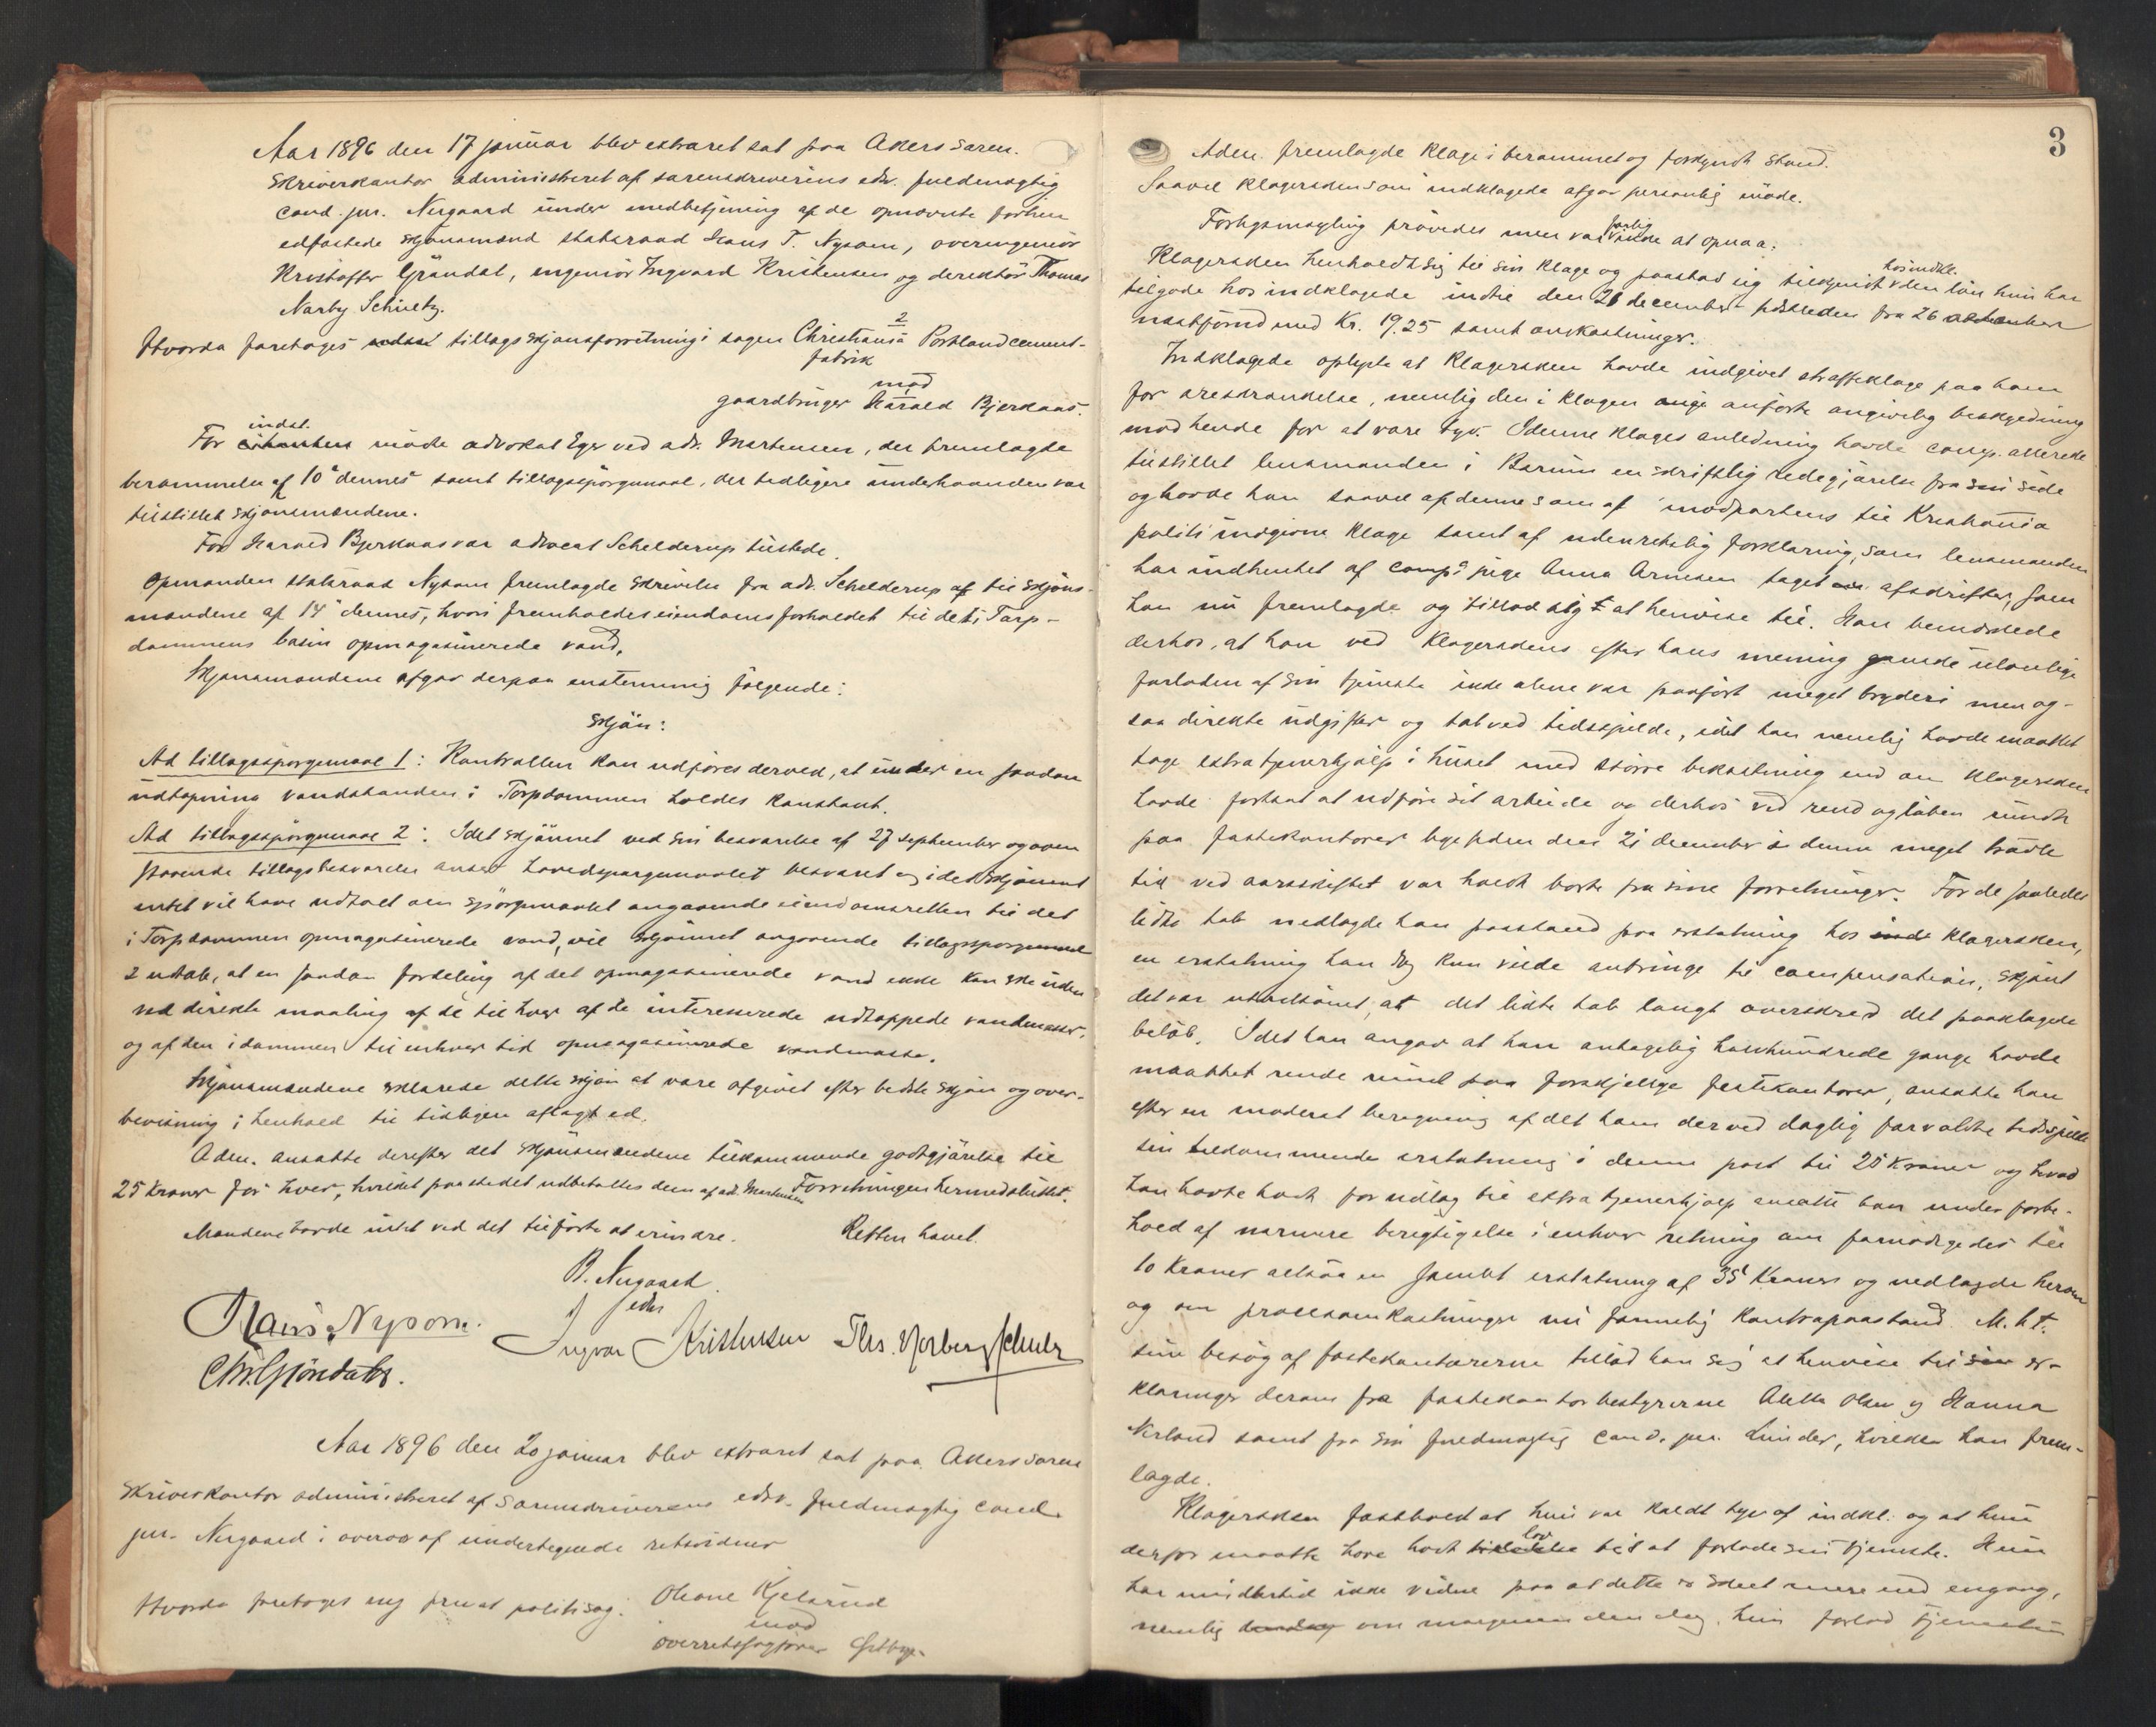 Aar 1896 den 17 januar blev extraret sat paa Akers soren-
skriverkontor administreret af sorenskriverens edsv. fuldmægtig
cand. jur. Nergaard under medbetjening af de opnævnte forhen
edfæstede skjønsmænd statsraad Hans T. Nysom, overingeniør
Kristoffer Gjøndal, ingeniør Ingvard Kristensen og direktør Thomas
Norby Schultz.
Hvorda foretoges tillægsskjønsforretning i sagen Christiania Portlandcement-
2
fabrik
mod
gaardbruger Harald Bjerkaas.
indst.
For mødte advokat Eger ved adv. Mortensen, der fremlagde
berammelse af 10de dennes samt tillægsspørgsmaal, der tidligere underhaanden var
tilstillet skjønsmændene.
For Harald Bjerkaas var advocat Schelderup tilstede.
Opmanden statsraad Nysom fremlagde skrivelse fra adv. Schelderup til skjøns-
mændene af 14de dennes, hvori fremholdes eiendomsforholdet til det i Torp-
dammens basin opmagasinerede vand.
Skjønsmændene afgav derpaa enstemmig følgende:
Skjøn:
Ad tillægsspørgsmaal 1: Kontrollen kan udføres derved, at under en saadan
udtapning vandstanden i Torpdammen holdes konstant.
Ad tillægsspørgsmaal 2: Idet skjønnet ved sin besvarelse af 27 september og oven
staaende tillægsbesvarelse anser hovedspørgsmaalet besvaret og idet skjønnet
intet vil have udtalt om spørgsmaalet angaaende eiendomsretten til det
i Torpdammen opmagasinerede vand, vil skjønnet angaaende tillægsspørgsmaal
2 udtale, at en saadan fordeling af det opmagasinerede vand ikke kan ske uden
ved direkte maaling af de til hver af de interesserede udtappede vandmasser,
og af den i dammen til enhver tid opmagasinerede vandmasse.
Skjønsmændene erklærede dette skjøn at være afgivet efter bedste skjøn og over-
bevisning i henhold til tidligere aflagt ed.
Adm. ansatte derefter det skjønsmændene tilkommende godtgjørelse til
25 kroner for hver, hvilket paa stedet udbetaltes dem af adv. Mortensen Forretningen hermed sluttet.
Mændene havde intet ved det tilførte at erindre. Retten hævet.
B. Nergaard
edsv
Hans Nysom. Ingvar Kristensen Ths. Norberg Schulz
Chr. Gjøndahl.
Aar 1896 den 20 januar blev extraret sat paa Akers soren
skriverkontor administreret af sorenskriverens edsv. fuldmægtig cand.
jur. Nergaard i overvær af undertegnede retsvidner
Hvorda foretoges ny privat politisag: Oleane Kjelsrud
mod
overretssagfører
3
Adm. fremlagde klage i berammet og forkyndt stand.
Saavel klagersken som indklagede afgav personlig møde.
Forligsmægling prøvedes men var ikke at opnaa.
forlig
Klagersken henholdt sig til sin klage og paastod sig tilkjendt den løn hun har
hos indkl.
tilgode hos indklagede indtil den 21 december sidstleden fra 26
næstførend med Kr. 19.25 samt omkostninger.
Indklagede oplyste at klagersken havde indgivet straffeklage paa ham
for æreskrænkelse, nemlig den i klagen anførte angivelig beskyldning
mod hende for at være tyv. I denne klages anledning havde comp. allerede
tilstillet lensmanden i Bærum en skriftlig redegjørelse fra sin side
og havde han saavel af denne som af modpartens til Kristiania
politi indgivne klage samt af udenretslig forklaring, som lensmanden
har indhentet af comps pige Anna Arnesen taget afskrifter, som
han nu fremlagde og tillod sig at henvise til. Han bemærkede
derhos, at han ved klagerskens efter hans mening ganske ulovlige
forladen af sin tjeneste ikke alene var paaført meget bryderi men og-
saa direkte udgifter og tab ved tidsspilde, idet han nemlig havde maattet
tage extra tjenerhjælp i huset med større bekostning end om klagersken
havde fortsat at udføre sit arbeide og derhos ved rend og løben rundt
paa fæstekontorer lige siden den 21 december i denne meget travle
tid ved aarsskiftet var holdt borte fra sine forretninger. For de saaledes
lidte tab nedlagde han paastand paa erstatning hos klagersken,
en erstatning han dog kun vilde anbringe til compensation, skjønt
det var utvilsomt, at det lidte tab langt overskred det paaklagede
beløb. Idet han angav at han antagelig halvhundrede gange havde
maattet rende rundt paa forskjellige fæstekontorer, ansatte han
efter en moderat beregning af det ham derved daglig forvoldte tidsspilde
sin tilkommende erstatning i denne post til 25 kroner og hvad
han havde havt for udlæg til extra tjenerhjælp ansatte han under forbe-
hold af nærmere berigtigelse i enhver retning om fornødiges til
10 kroner altsaa en samlet erstatning af 35 kroner og nedlagde herom
og om procesomkostninger nu formelig kontrapaastand. M. h. t.
sine besøg af fæstekontorerne tillod han sig at henvise til er-
klæringer derom fra fæstekontorbestyrerne Alette Olsen og Hanna
Nerland samt fra sin fuldmægtig cand. jur. Linder, hvilke han frem-
lagde.
Klagersken fastholdt at hun var kaldt tyv af indkl. og at hun
derfor maatte have havt lov til at forlade sin tjeneste. Hun
har imidlertid ikke vidne paa at dette er skeet mere end engang,
nemlig om morgenen den dag hun forlod tjenesten